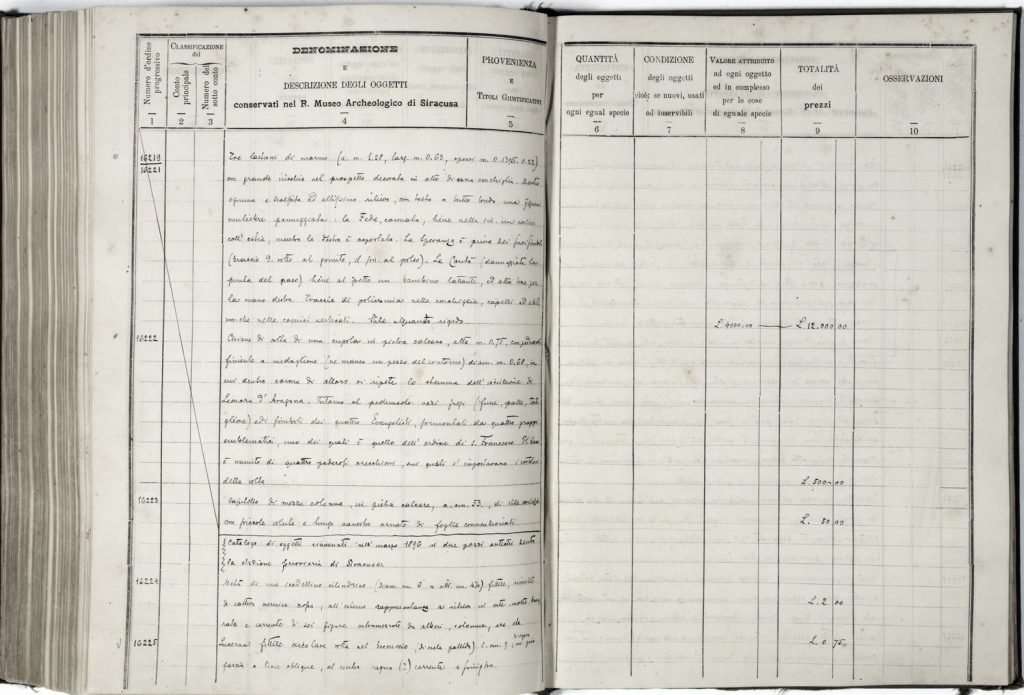 Numero d'ordine progressivo
CLASSIFICAZIONE
del
Conto principale
Numero del sotto conto
DENOMINAZIONE
E
DESCRIZIONE DEGLI OGGETTI
conservati nel R. Museo Archeologico di Siracusa
PROVENIENZA
E
TITOLI GIUSTIFICATIVI
1
2
3
4
5
16219
16221
Tre lastroni di marmo (a. m. 1.28, larg. m. 0.63,
con grande nicchia nel prospetto decorata in alto di una conchiglia
scolpita ad altissimo rilievo, con testa a tutto tondo una figura
muliebre panneggiata: la Fede, tiene nella sin. un calice
coll' ostia, mentre la destra è asportata. La Speranza è priva dei
(braccio d. rotto al gomito, al polso). La Carità (danneggiata la
punta del naso) tiene al petto un bambino lattante, ed altro
la mano destra. Traccie di policromia nelle conchiglie, capelli ed
nonchè nelle cornici verticali. Stile alquanto rigido.
16222
Chiave di volta di una cupola in pietra calcare, alta m. 0.75,
a medaglione (ne manca un pezzo del contorno) diam. m. 0.68, in
cui dentro corona di alloro si ripete lo stemma dell' iscrizione di
Leonora D' Aragona. Intorno al peduncolo
ed i simboli dei quattro Evangelisti, sormontati da quattro gruppi
emblematici, uno dei quali è quello dell' ordine di S. Francesco.
è munito di quattro orecchioni, sui quali s' impostavano i
della volta
16223
Capitello di mezza colonna, in pietra calcare, a. cm. 53, di stile
con piccole volute e lungo ornato di foglie convenzionali
Catalogo di oggetti rinvenuti nell' marzo 1896 in due pozzi antichi
la stazione ferroviaria di Siracusa
16224
Metà di uno scodellino cilindrico (diam. cm. fittile,
di cattiva vernice all' esterno rappresentanza a rilievo
e corrente di sei figure da alberi, colonne, are
16225
Lucerna fittile circolare rotta nel beccuccio, di creta pallida
fascia a linee oblique, al centro cagna (?) corrente a
QUANTITÀ
degli oggetti
per
ogni egual specie
CONDIZIONE
degli oggetti
cioè: se nuovi, usati
od inservibili
VALORE ATTRIBUITO
ad ogni oggetto
ed in complesso
per le cose
di eguale specie
TOTALITÀ
dei
prezzi
OSSERVAZIONI
6
7
8
9
10
L. 4000.00 L. 12.000 00
L. 500 00
L. 50 00
L. 2 00
L. 0 75